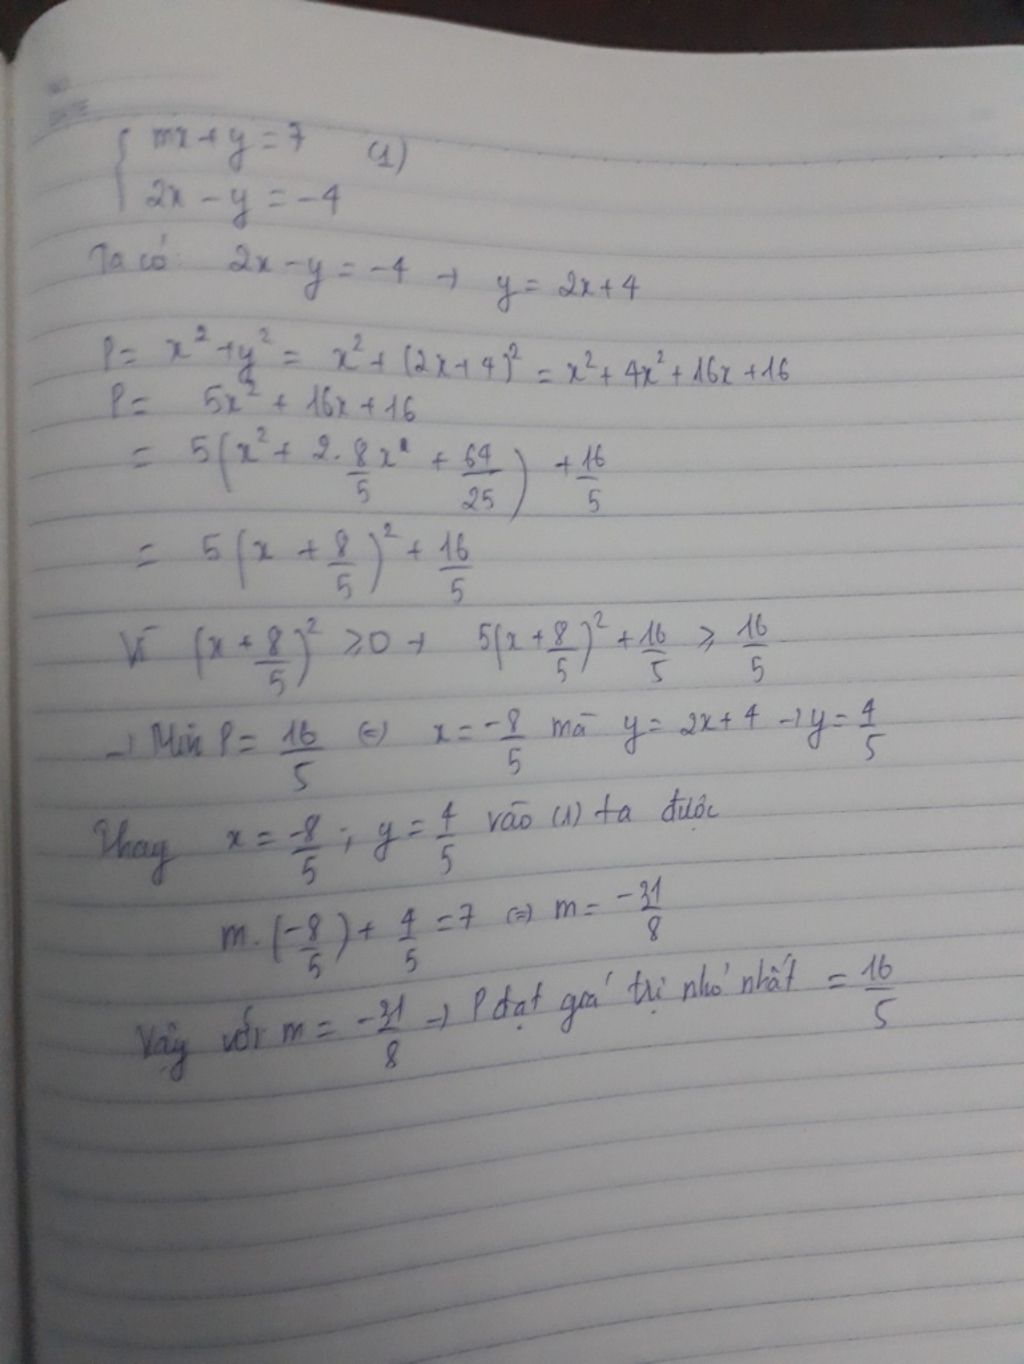 { mx + y = 7 (1)
2x - y = -4
Ta có: 2x - y = -4 → y = 2x + 4
P = x² + y² = x² + (2x + 4)² = x² + 4x² + 16x + 16
P = 5x² + 16x + 16
= 5(x² + 2. 8/5 x + 64/25) + 16/5
= 5(x + 8/5)² + 16/5
Vì (x + 8/5)² ≥ 0 → 5(x + 8/5)² + 16/5 ≥ 16/5
→ Min P = 16/5 (=) x = -8/5 mà y = 2x + 4 → y = 4/5
Thay x = -8/5 ; y = 4/5 vào (1) ta được
m. (-8/5) + 4/5 = 7 (=) m = -31/8
Vậy với m = -31/8 → P đạt giá trị nhỏ nhất = 16/5